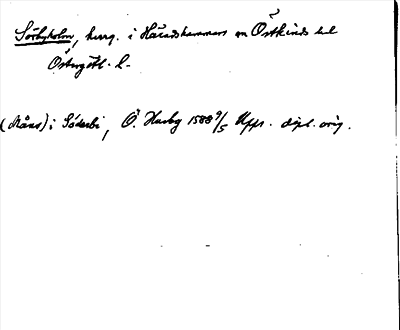 Sörbyholm, herrg. i Häradshammars sn Östkinds hd
Östergötl. l.
(Måns) i Söderbi, Ö. Husby 1588 9/5 Upps. dipl. orig.